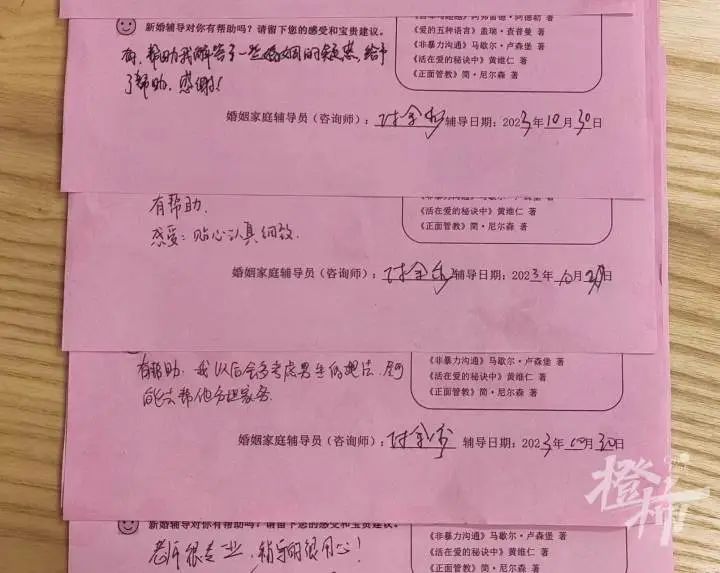 《自卑与超越》阿弗雷德·阿德勒 著
新婚辅导对你有帮助吗？请留下您的感受和宝贵建议。
《爱的五种语言》盖瑞·查普曼 著
《非暴力沟通》马歇尔·卢森堡 著
有，帮助我解答了一些婚姻的疑惑，给予
《活在爱的秘诀中》黄维仁 著
了帮助，感谢！
《正面管教》简·尼尔森 著
婚姻家庭辅导员（咨询师）：
辅导日期：2023年10月30日
《非暴力沟通》马歇尔·卢森堡 著
有帮助.
《活在爱的秘诀中》黄维仁 著
感受：贴心认真细致.
《正面管教》简·尼尔森 著
婚姻家庭辅导员（咨询师）：
辅导日期：2023年10月30日
《非暴力沟通》马歇尔·卢森堡 著
有帮助，我以后会多考虑男生的想法，尽可
《活在爱的秘诀中》黄维仁 著
能去帮他分担家务.
《正面管教》简·尼尔森 著
婚姻家庭辅导员（咨询师）：
辅导日期：2023年10月30日
橙柿
新婚辅导对你有帮助吗？请留下您的感受和宝贵建议。
《非暴力沟通》马歇尔·卢森堡 著
老师很专业，辅导的很用心！
《活在爱的秘诀中》黄维仁 著
《正面管教》简·尼尔森 著